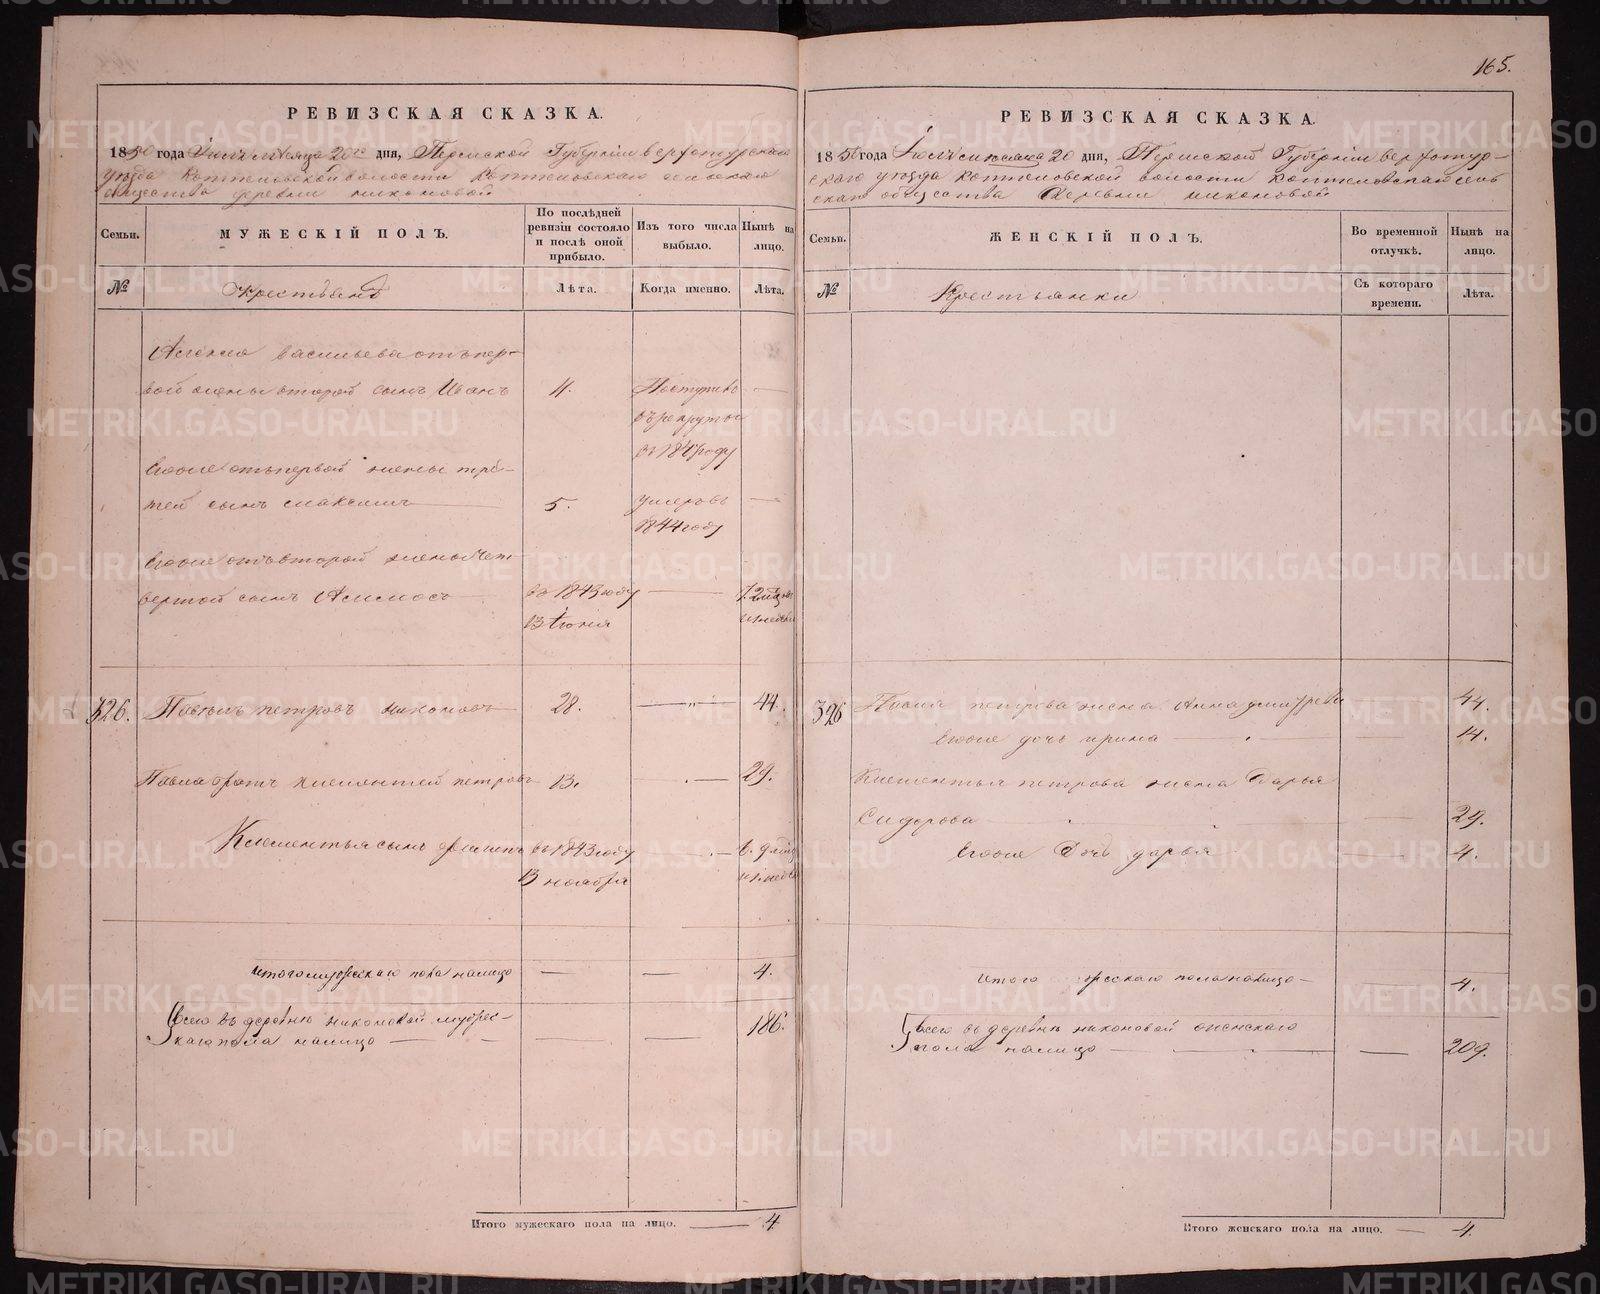 165.
РЕВИЗСКАЯ СКАЗКА.
1850 года Іюля месяца 20го дня, Пермской Губерніи верхотурскаго
уѣзда Коптеловской волости Коптеловскаго сельскаго
общества деревни никоновой
Семьи.
МУЖЕСКІЙ ПОЛЪ.
По послѣдней ревизіи состояло и послѣ оной прибыло.
Изъ того числа выбыло.
Нынѣ на лицо.
№
Крестьянъ
Лѣта.
Когда именно.
Лѣта.
васильева отъ пер-
вой жены второй сынъ Иванъ 11. Поступивъ —
въ рекруты
въ 184 году
Егоже отъ первой жены тре-
тей сынъ максимъ 5. умеръ въ —
1844 году
Егоже отъ второй жены чет-
вертой сынъ въ 1843 году —
13 Іюня
326. Павелъ петровъ никоновъ 28. — 44.
Павла братъ клементей петровъ 13. — 29.
Клементья сынъ въ 1843 году —
13 ноября
итого мужескаго пола налицо — — 4.
Всего въ деревнѣ никоновой мужес-
каго пола налицо — — — 186.
Итого мужескаго пола на лицо. — 4
РЕВИЗСКАЯ СКАЗКА.
1850 года Іюля месяца 20 дня, Пермской Губерніи верхотур-
скаго уѣзда коптеловской волости коптеловскаго сель
скаго общества Деревни никоновой
Семьи.
ЖЕНСКІЙ ПОЛЪ.
Во временной отлучкѣ.
Нынѣ на лицо.
№
Крестьянки
Съ котораго времени.
Лѣта.
326 Павла петрова жена Анна дмитрева — 44.
Егоже дочь ирина — — 14.
Клементья петрова жена Дарья
Сидорова — — 29.
Егоже Дочь дарья — 4.
итого женскаго пола налицо — — 4.
Всего въ деревнѣ никоновой женскаго
пола налицо — — — 209.
Итого женскаго пола на лицо. — 4.
METRIKI.GASO-URAL.RU